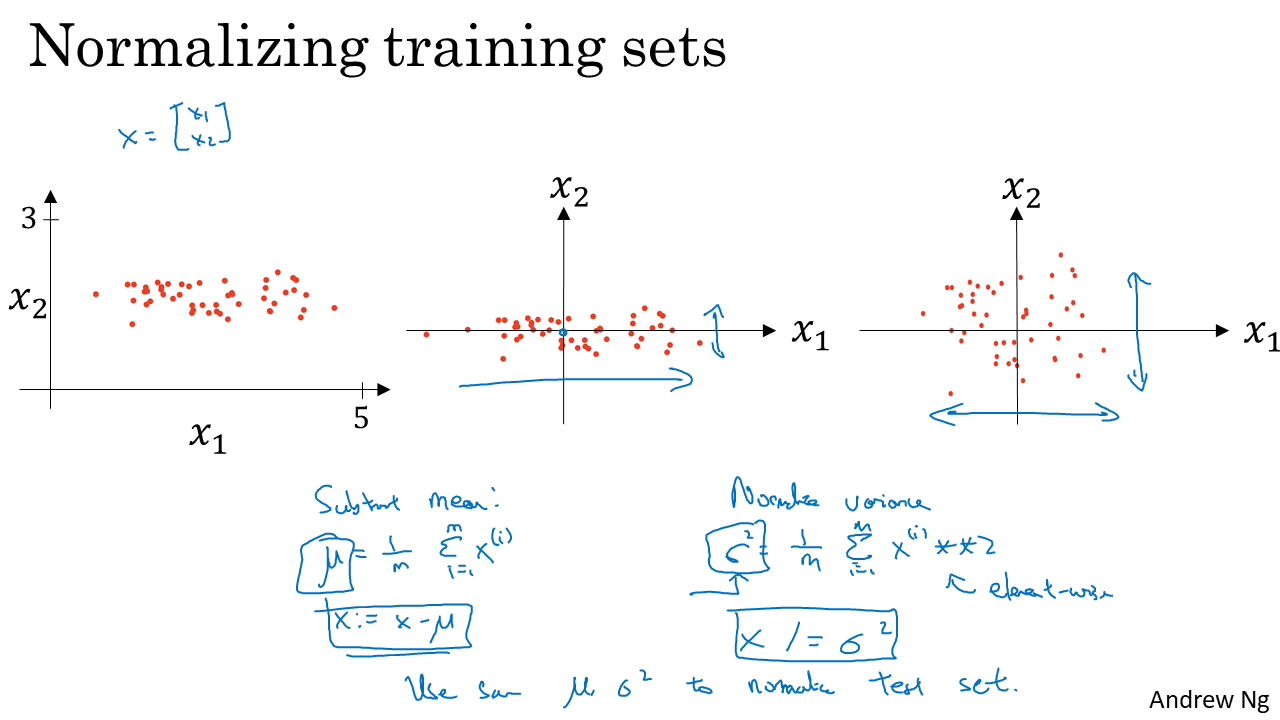 Normalizing training sets
x = [x1
x2]
3
x2
5
x1
x2
x1
x2
x1
Subtract mean:
μ = 1/m Σ i=1 m x(i)
x := x - μ
Normalize variance
σ² = 1/m Σ i=1 m x(i) **2
element-wise
x /= σ²
Use same μ, σ² to normalize test set.
Andrew Ng